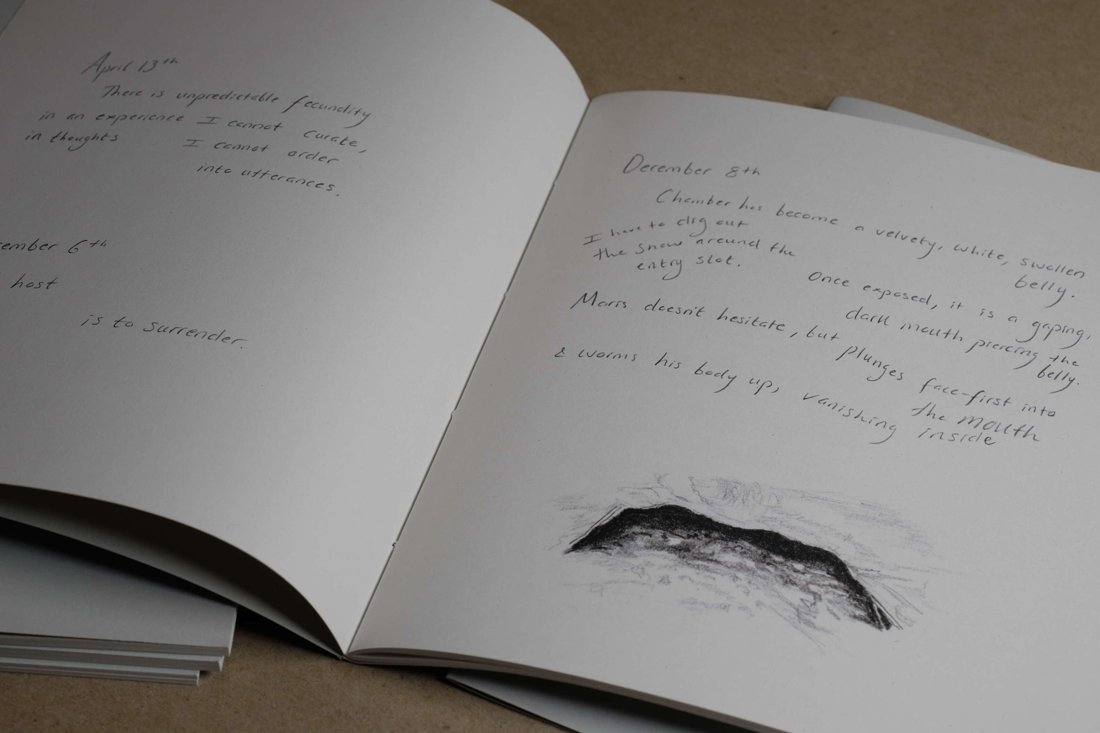 April 13th
There is unpredictable fecundity
in an experience I cannot curate,
in thoughts I cannot order
into utterances.
cember 6th
host
is to surrender.
December 8th
Chamber has become a velvety, white, swollen
belly.
I have to dig out
the snow around the
entry slot.
Once exposed, it is a gaping,
dark mouth piercing the
belly.
doesn't hesitate, but plunges face-first into
the mouth
& worms his body up, vanishing inside